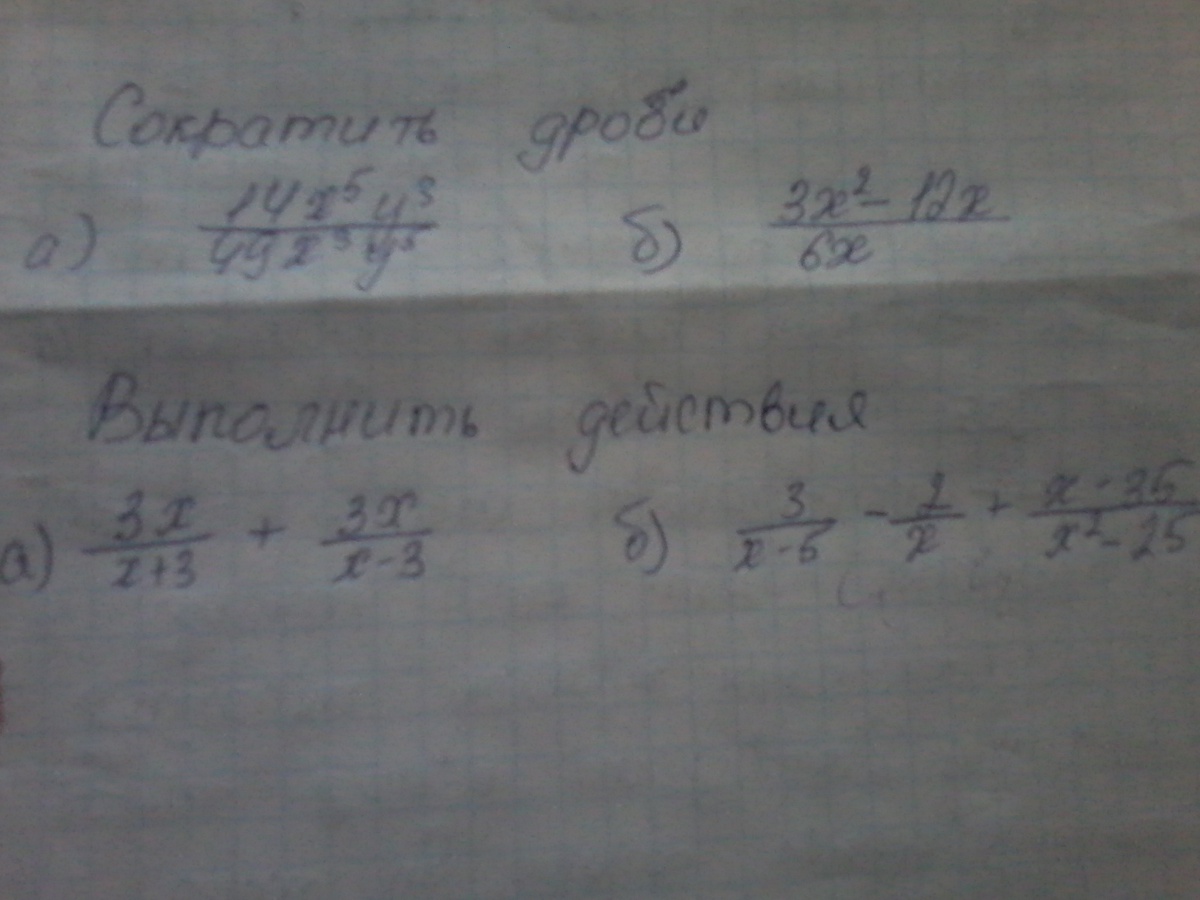 Сократить дроби
а) 14x⁵y³/49x³y³ б) 3x²-12x/6x
Выполнить действия
а) 3x/x+3 + 3x/x-3 б) 3/x-5 - 2/x + x-35/x²-25